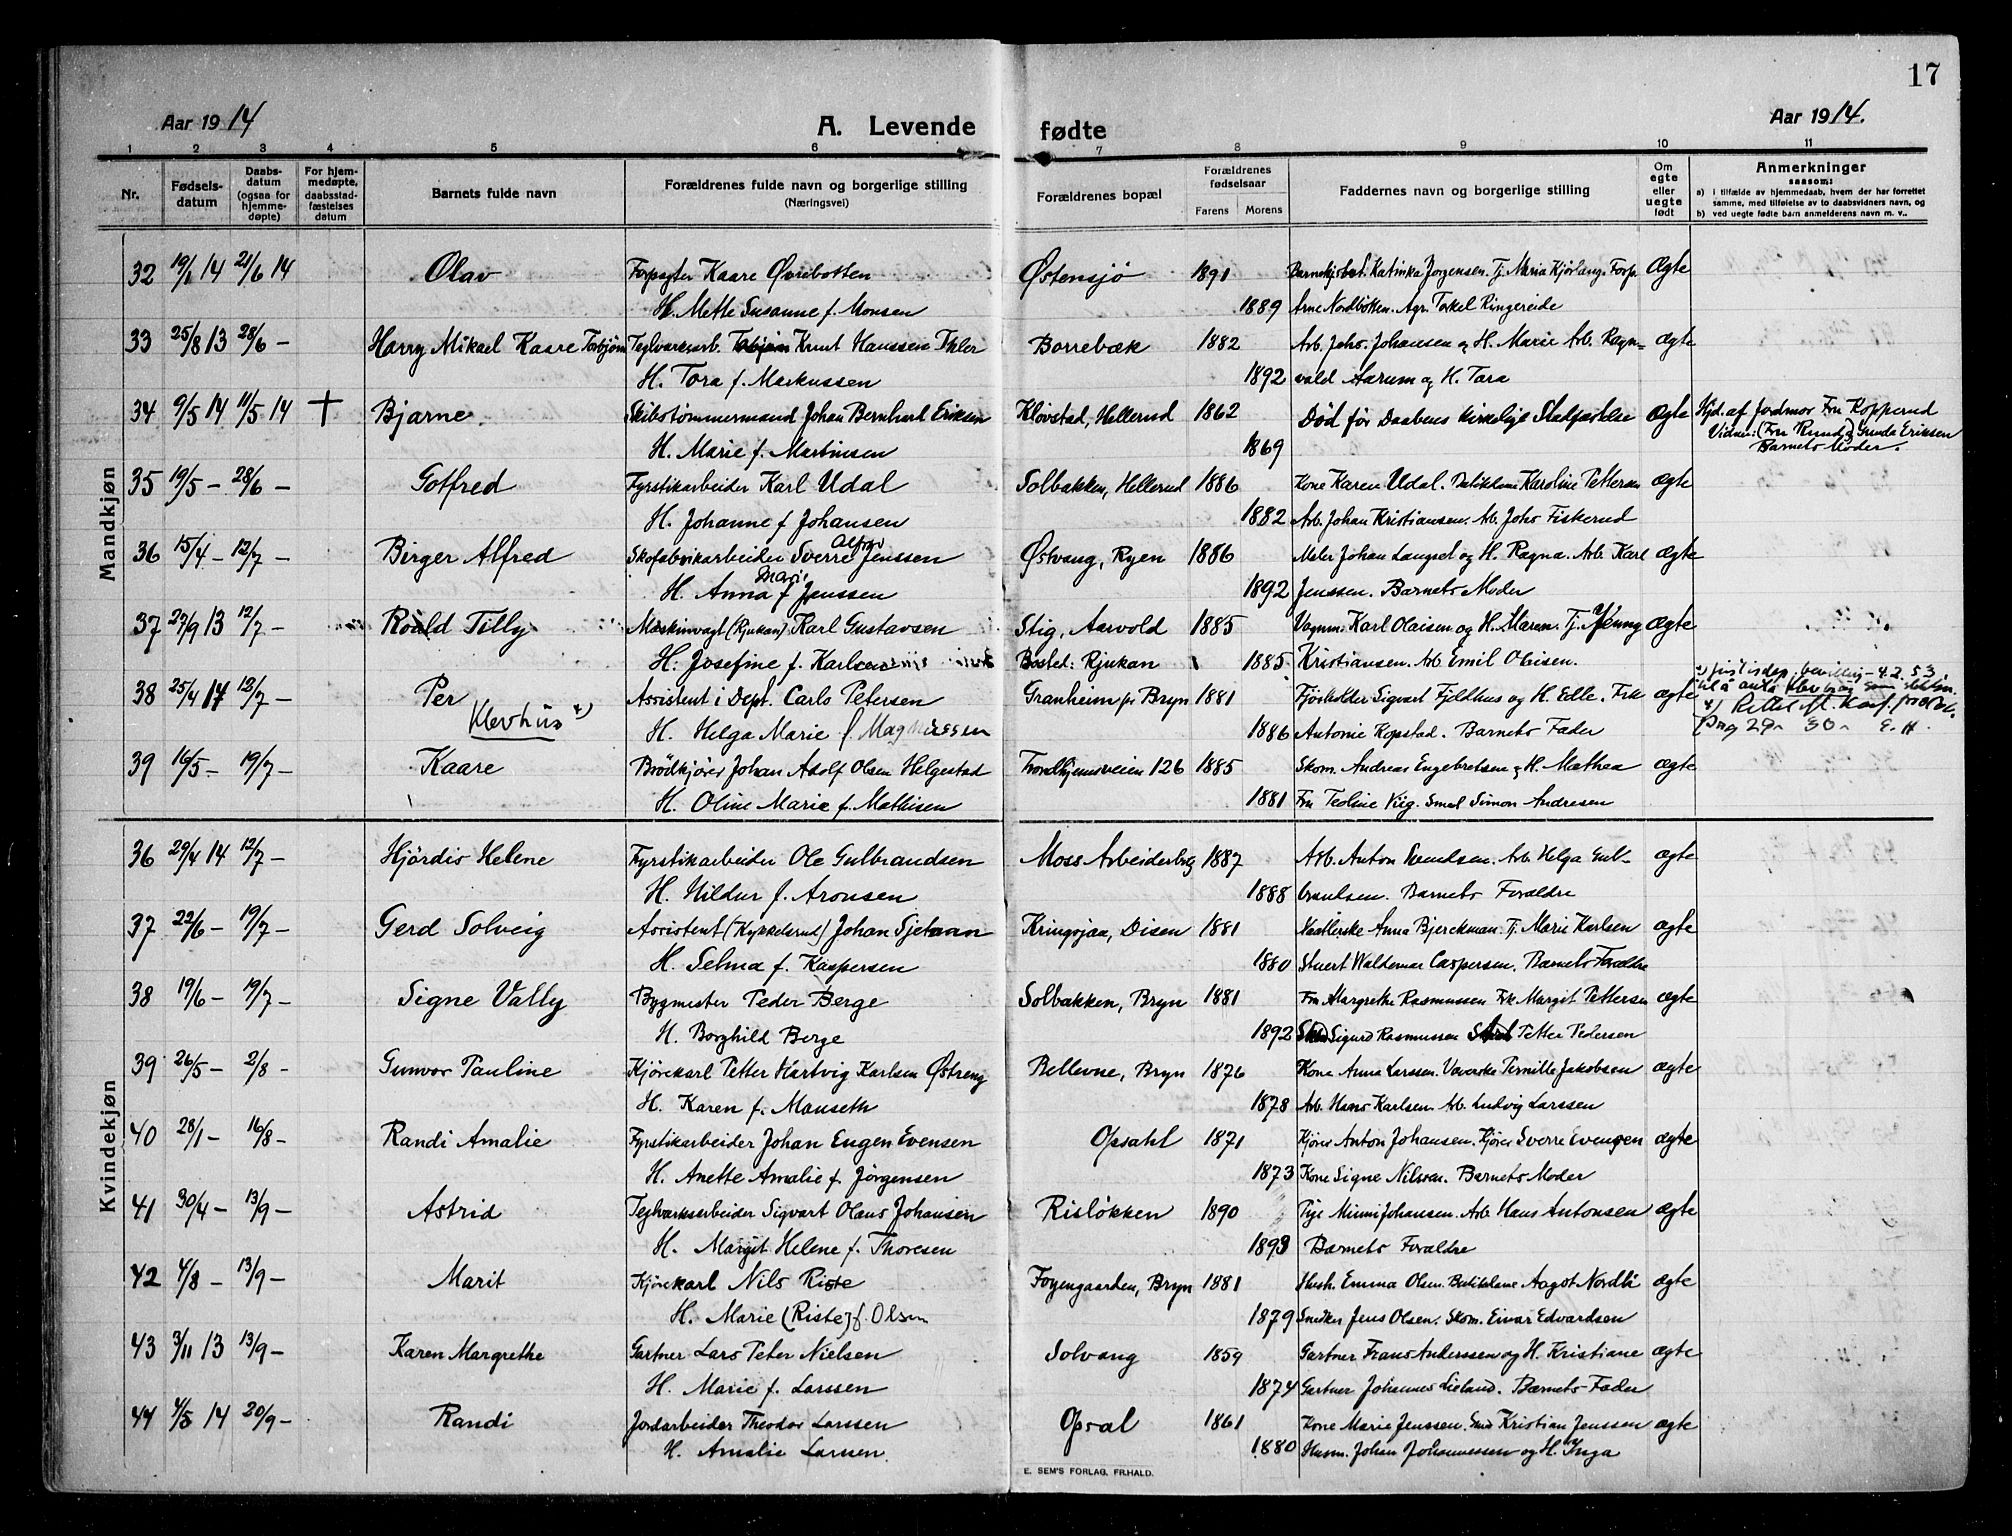 17
Aar 1914
A. Levende fødte
Aar 1914.
1 2 3 4 5 6 7 8 9 10 11
Nr.
Fødsels-datum
Daabs-datum (ogsaa for hjemme-døpte)
For hjem-medøpte, daabsstad-fæstelses datum
Barnets fulde navn
Forældrenes fulde navn og borgerlige stilling (Næringsvei)
Forældrenes bopæl
Forældrenes fødselsaar
Farens Morens
Faddernes navn og borgerlige stilling
Om egte eller uegte født
Anmerkninger
saasom:
a) i tilfælde av hjemmedaab, hvem der har forrettet samme, med tilføielse av to daabsvidners navn, og
b) ved uegte fødte barn anmelderens navn m. v..
Mandkjøn
32 19/1 14 21/6 14 Olav Forpagter Kaare Øvrebotten Østensjø 1891 Katinka Jørgensen. Tj. Maria Kjørlaug. Forp. Ægte
H. Mette Susanne f. Monsen 1889 Arne Nordbotten. Agr. Torkel Ringereide
33 25/8 13 28/6 – Harry Mikael Kaare Torbjørn Teglverksarb. Knut Hanssen Borrebæk 1882 Arb. Johs. Johansen og H. Marie Arb. Ragn- ægte
H. Tora f. Markussen 1892 vald Aarum og H. Tora
34 9/5 14 11/5 14 † Bjarne. Skibstømmermand Johan Bernhard Eriksen Kløvstad, Hellerud 1862 Død før Daabens kirkelige Stadfæstelse Ægte Hjd. af Jordmor Fru Kopperud
H. Marie f. Martinsen 1869 Vidner: (Fru Rund) og Gunda Eriksen
Barnets Moder.
35 19/5 – 28/6 – Gotfred Fyrstikarbeider Karl Udal Solbakken, Hellerud 1886 Kone Karen Udal. Karoline Pettersen ægte
H. Johanne f Johansen 1882 Arb. Johan Kristiansen. Arb. Johs Fiskerud
36 15/4 – 12/7 – Birger Alfred Skofabrikarbeider Sverre Alfred Jenssen Østvang, Ryen 1886 Maler Johan Langset og H. Ragna. Arb. Karl ægte
H. Anna Marie f Jenssen 1892 Jenssen. Barnets Moder
37 27/9 13 12/7 – Roald Tilly Maskinvagt (Rjukan) Karl Gustavsen Stig, Aarvold 1885 Vognm. Karl Olaisen og H. Maren. Tj. Jenny Ægte
H. Josefine f. Karlsen Bosted: Rjukan 1885 Kristiansen. Arb. Emil Olsisen.
38 25/4 14 12/7 – Per Assistent i Dept. Carlo Petersen Granheim pr Bryn 1881 Fjøsholder Sigvart Fjeldhus og H. Elle. Frk ægte bevilling – 4.2.53
Klevhus x) H. Helga Marie f. Magnussen 1886 Antonie Kopstad. Barnets Fader
39 16/5 – 19/7 – Kaare Brødkjører Johan Adolf Olsen Helgestad Trondhjemsveien 126 1885 Skom. Andreas Engebretsen og H. Mathea ægte
H. Oline Marie f. Mathisen 1881 Fru Teoline Viig. Smed Simon Andresen
Kvindekjøn
36 29/4 14 12/7 – Hjördis Helene Fyrstikarbeider Ole Gulbrandsen Moss Arbeiderbolig 1887 Arb. Anton Svendsen. Arb. Helga Gul- ægte
H. Hildur f. Aronsen 1888 brandsen. Barnets Forældre
37 22/6 – 19/7 – Gerd Solveig Assistent (Kykkelsrud) Johan Sjetnan Kringsjaa, Disen 1881 Anna Bjerckman. Tj. Marie Karlsen ægte
H. Selma f. Kaspersen 1880 Stuert Waldemar Caspersen. Barnets Forældre
38 19/6 – 19/7 – Signe Vally Bygmester Peder Berge Solbakken, Bryn 1881 Fru Margrethe Rasmussen Frk. Margit Pettersen ægte
H. Borghild Berge 1892 Sigurd Rasmussen Petter Pedersen
39 26/5 – 2/8 – Gunvor Pauline Kjørekarl Petter Hartvig Karlsen Østreng Bellevue, Bryn 1876 Kone Anna Larssen. Væverske Pernille Jakobsen ægte
H. Karen f. Manseth 1878 Arb. Hans Karlsen. Arb. Ludvig Larssen
40 28/1 – 16/8 – Randi Amalie Fyrstikarbeider Johan Eugen Evensen Opsahl 1871 Kjører Anton Johansen. Kjører Sverre Evensen ægte
H. Anette Amalie f. Jörgensen 1873 Kone Signe Nilsen. Barnets Moder
41 30/4 – 13/9 – Astrid Teglverksarbeider Sigvart Olaus Johansen Risløkken 1890 Pige Minni Johansen. Arb. Hans Antonsen ægte
H. Margit Helene f. Thoresen 1893 Barnets Forældre
42 4/8 – 13/9 – Marit Kjørekarl Nils Riste Foyengaarden, Bryn 1881 Hush. Emma Olsen. Butikdame Aagot Nordli ægte
H. Marie (Riste) f. Olsen 1879 Snedker Jens Olsen. Skom. Einar Edvardsen
43 3/11 13 13/9 – Karen Margrethe Gartner Lars Peter Nielsen Solvang 1859 Gartner Frans Anderssen og H. Kristiane ægte
H. Marie f. Larssen 1874 Gartner Johannes Lieland. Barnets Fader
44 4/5 14 20/9 – Randi Jordarbeider Theodor Larssen Opsal 1861 Kone Marie Jenssen. Smed Kristian Jenssen ægte
H. Amalie Larsen. 1880 Husm. Johan Johannessen og H. Inga
E. SEM'S FORLAG, FR.HALD.